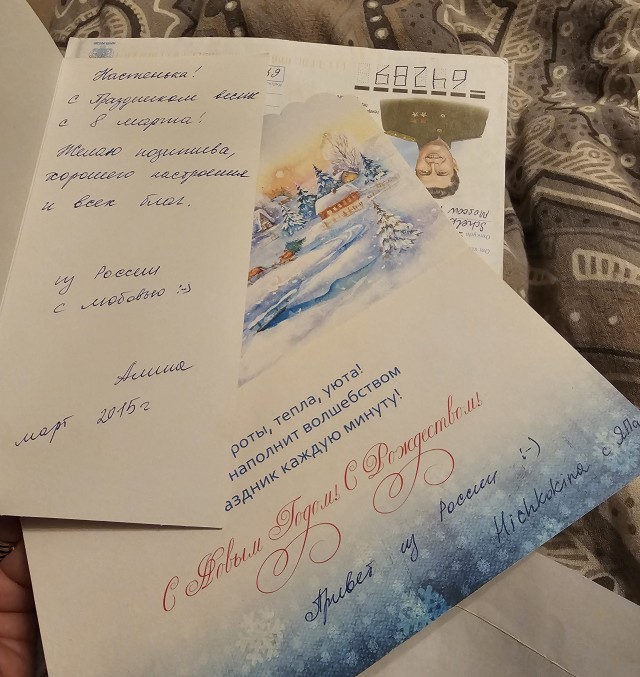 Настенька!
с Праздником весны
с 8 марта!
Желаю позитива,
хорошего настроения
и всех благ.
из России
с любовью :-)
Алина
март 2015г
роты, тепла, уюта!
наполнит волшебством
аздник каждую минуту!
С Новым Годом! С Рождеством!
Привет из России :-)
Hichkokina с ЯПа
64289
Moscow